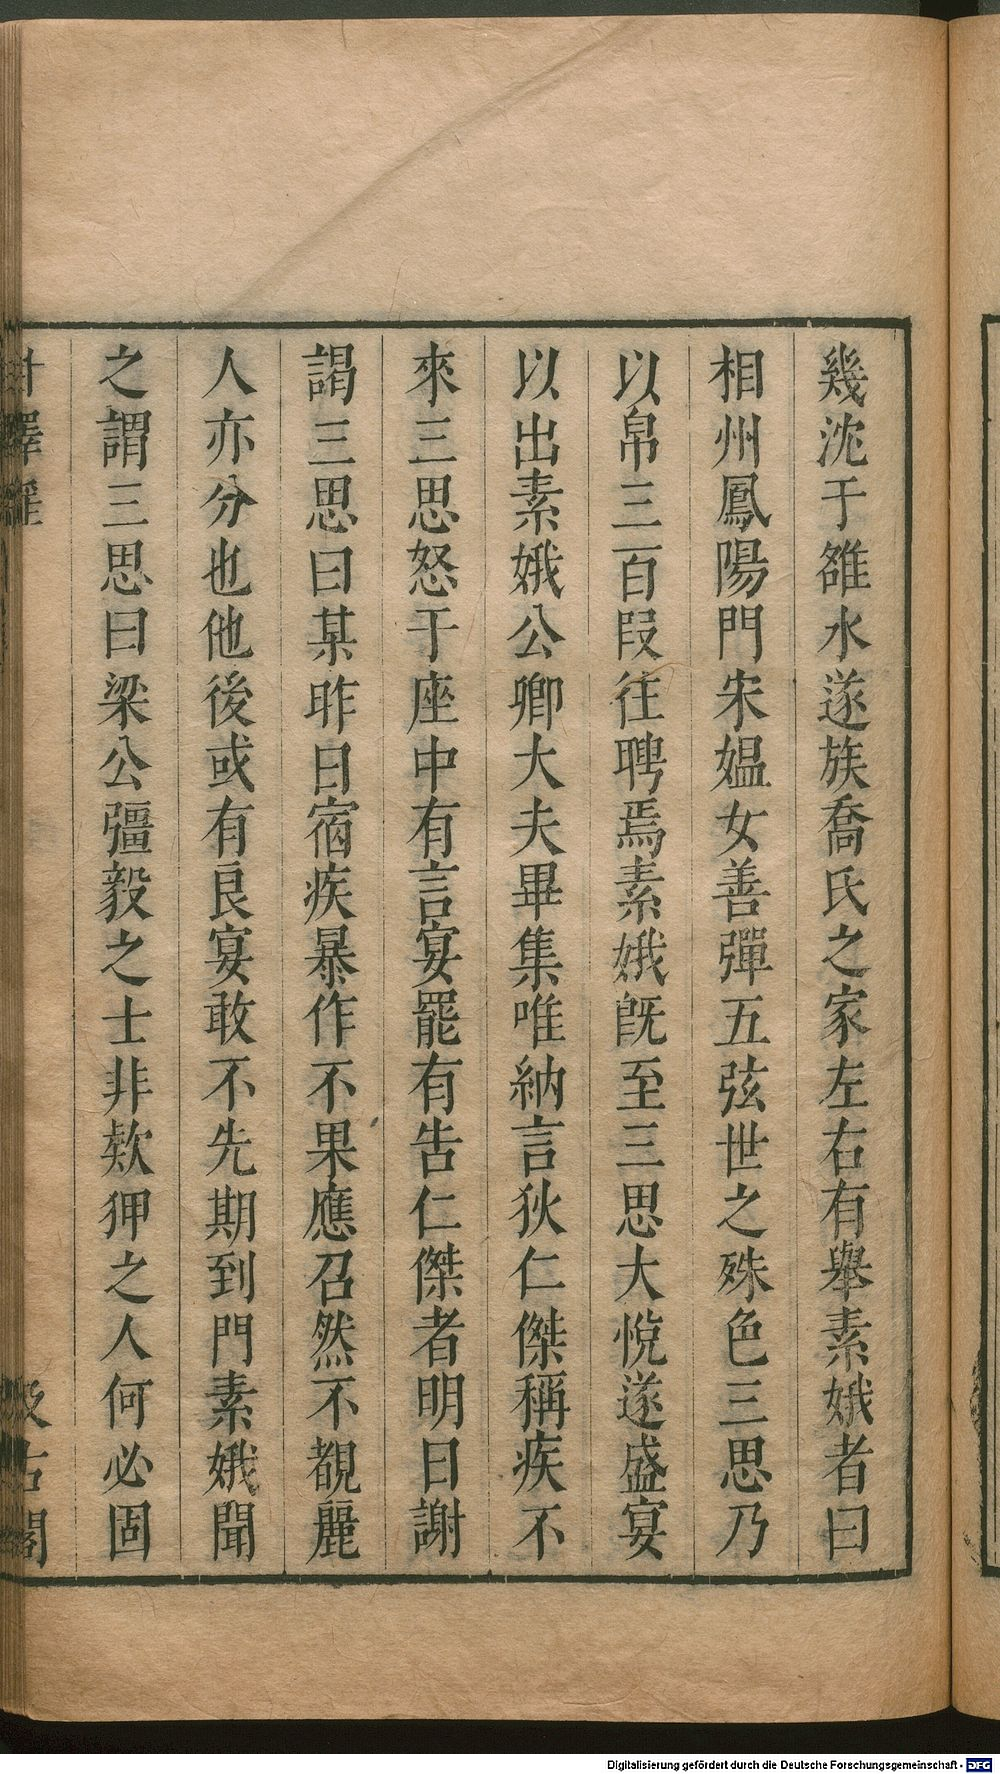 幾沈于雒水遂族喬氏之家左右有舉素娥者曰
相州鳳陽門宋媼女善彈五弦世之殊色三思乃
以帛三百段往聘焉素娥旣至三思大悅遂盛宴
以出素娥公卿大夫畢集唯納言狄仁傑稱疾不
來三思怒于座中有言宴罷有告仁傑者明日謝
謁三思曰某昨日宿疾暴作不果應召然不覩麗
人亦分也他後或有良宴敢不先期到門素娥聞
之謂三思曰梁公彊毅之士非款狎之人何必固
汲古閣
Digitalisierung gefördert durch die Deutsche Forschungsgemeinschaft - DFG